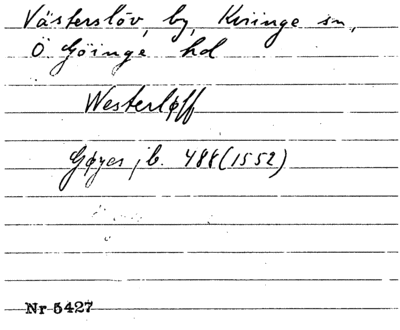 Västerslöv, by, Kviinge sn,
Ö Göinge hd
Westerløff
Gøyes jb. 488 (1552)
Nr 5427